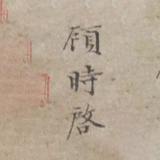 顧時啓